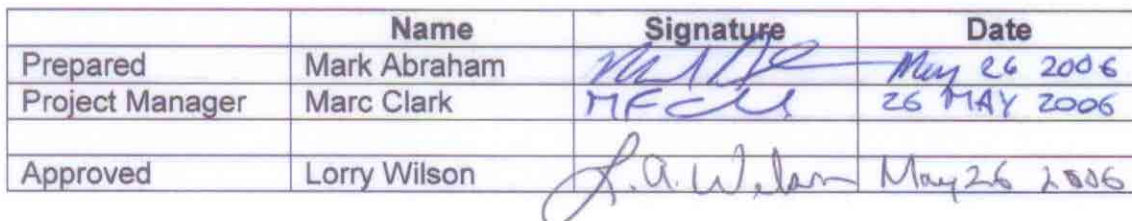 Name Signature Date
Prepared Mark Abraham May 26 2006
Project Manager Marc Clark MF Clark 26 MAY 2006
Approved Lorry Wilson L.A. Wilson May 26 2006